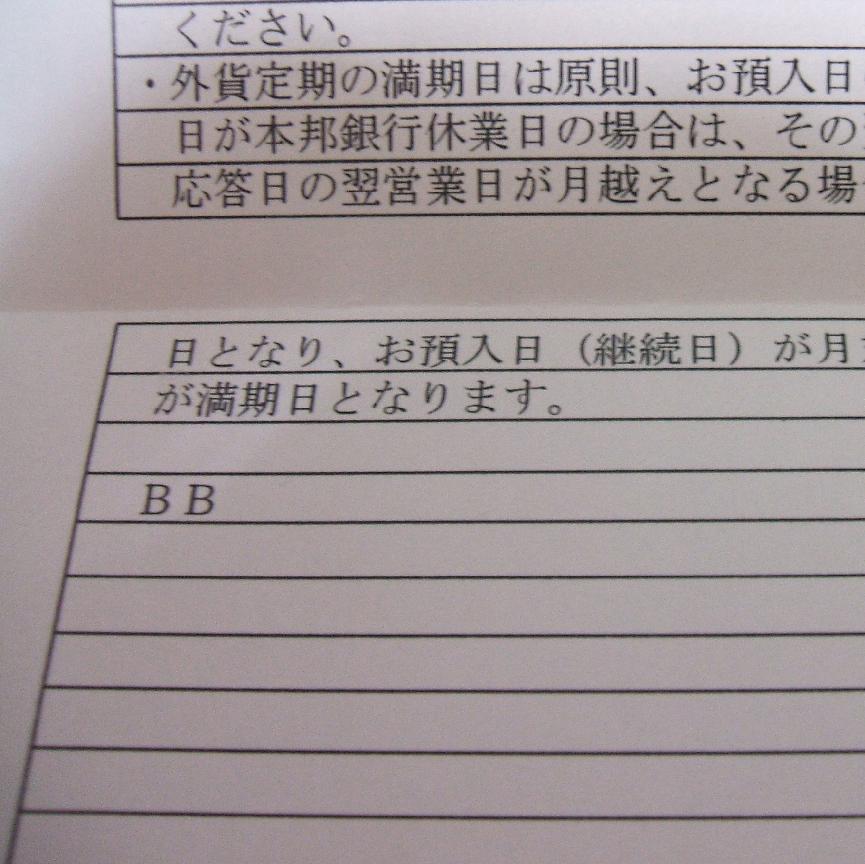 ください。
・外貨定期の満期日は原則、お預入日
日が本邦銀行休業日の場合は、その
応答日の翌営業日が月越えとなる場
日となり、お預入日（継続日）が月
が満期日となります。
BB